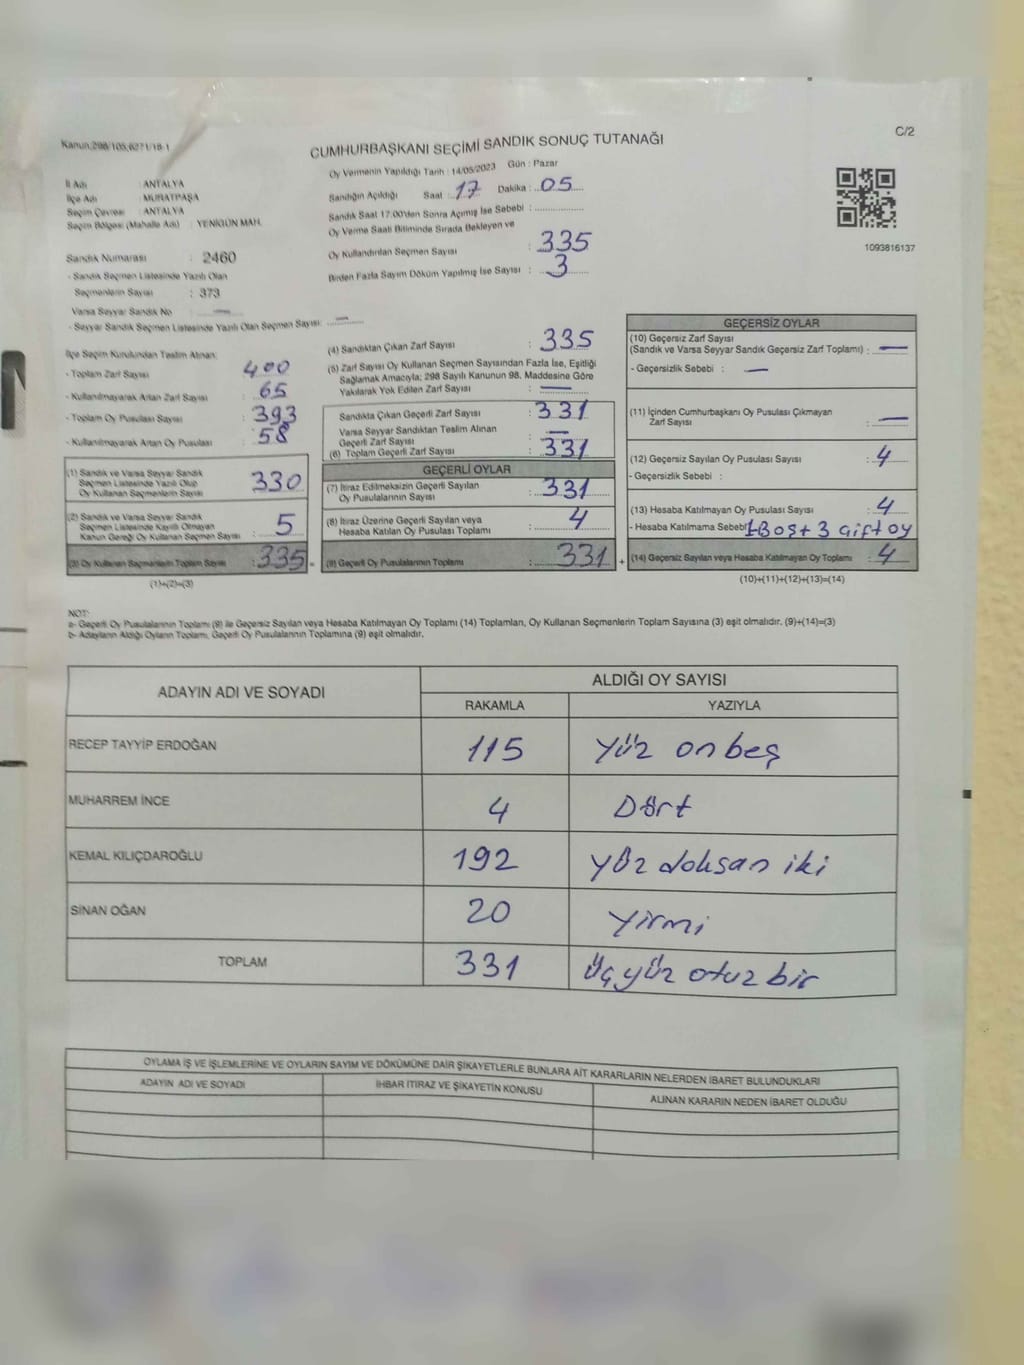 Kanun:298/105;6271/18-1
CUMHURBAŞKANI SEÇİMİ SANDIK SONUÇ TUTANAĞI
C/2
Oy Vermenin Yapıldığı Tarih : 14/05/2023 Gün : Pazar
İl Adı : ANTALYA
İlçe Adı : MURATPAŞA
Seçim Çevresi : ANTALYA
Seçim Bölgesi (Mahalle Adı) : YENİGÜN MAH.
Sandığın Açıldığı Saat : 17 Dakika : 05
Sandık Saat 17.00'den Sonra Açımış İse Sebebi :
Oy Verme Saati Bitiminde Sırada Bekleyen ve
Oy Kullandırılan Seçmen Sayısı : 335
Birden Fazla Sayım Döküm Yapılmış İse Sayısı : 3
1093816137
Sandık Numarası : 2460
- Sandık Seçmen Listesinde Yazılı Olan
Seçmenlerin Sayısı : 373
Varsa Seyyar Sandık No : —
- Seyyar Sandık Seçmen Listesinde Yazılı Olan Seçmen Sayısı: —
İlçe Seçim Kurulundan Teslim Alınan:
- Toplam Zarf Sayısı : 400
- Kullanılmayarak Artan Zarf Sayısı : 65
- Toplam Oy Pusulası Sayısı : 393
- Kullanılmayarak Artan Oy Pusulası : 58
(1) Sandık ve Varsa Seyyar Sandık
Seçmen Listesinde Yazılı Olup
Oy Kullanan Seçmenlerin Sayısı : 330
(2) Sandık ve Varsa Seyyar Sandık
Seçmen Listesinde Kayıtlı Olmayan
Kanun Gereği Oy Kullanan Seçmen Sayısı : 5
(3) Oy Kullanan Seçmenlerin Toplam Sayısı : 335 =
(1)+(2)=(3)
(4) Sandıktan Çıkan Zarf Sayısı : 335
(5) Zarf Sayısı Oy Kullanan Seçmen Sayısından Fazla İse, Eşitliği
Sağlamak Amacıyla; 298 Sayılı Kanunun 98. Maddesine Göre
Yakılarak Yok Edilen Zarf Sayısı : —
Sandıkta Çıkan Geçerli Zarf Sayısı : 331
Varsa Seyyar Sandıktan Teslim Alınan
Geçerli Zarf Sayısı : —
(6) Toplam Geçerli Zarf Sayısı : 331
GEÇERLİ OYLAR
(7) İtiraz Edilmeksizin Geçerli Sayılan
Oy Pusulalarının Sayısı : 331
(8) İtiraz Üzerine Geçerli Sayılan veya
Hesaba Katılan Oy Pusulası Toplamı : 4
(9) Geçerli Oy Pusulalarının Toplamı : 331 +
GEÇERSİZ OYLAR
(10) Geçersiz Zarf Sayısı
(Sandık ve Varsa Seyyar Sandık Geçersiz Zarf Toplamı) : —
- Geçersizlik Sebebi : —
(11) İçinden Cumhurbaşkanı Oy Pusulası Çıkmayan
Zarf Sayısı : —
(12) Geçersiz Sayılan Oy Pusulası Sayısı : 4
- Geçersizlik Sebebi :
(13) Hesaba Katılmayan Oy Pusulası Sayısı : 4
- Hesaba Katılmama Sebebi 1 Boş+ 3 Çift oy
(14) Geçersiz Sayılan veya Hesaba Katılmayan Oy Toplamı : 4
(10)+(11)+(12)+(13)=(14)
NOT:
a- Geçerli Oy Pusulalarının Toplamı (9) ile Geçersiz Sayılan veya Hesaba Katılmayan Oy Toplamı (14) Toplamları, Oy Kullanan Seçmenlerin Toplam Sayısına (3) eşit olmalıdır. (9)+(14)=(3)
b- Adayların Aldığı Oyların Toplamı, Geçerli Oy Pusulalarının Toplamına (9) eşit olmalıdır.
ADAYIN ADI VE SOYADI
ALDIĞI OY SAYISI
RAKAMLA YAZIYLA
RECEP TAYYİP ERDOĞAN 115 yüz on beş
MUHARREM İNCE 4 Dört
KEMAL KILIÇDAROĞLU 192 yüz doksan iki
SİNAN OĞAN 20 yirmi
TOPLAM 331 üç yüz otuz bir
OYLAMA İŞ VE İŞLEMLERİNE VE OYLARIN SAYIM VE DÖKÜMÜNE DAİR ŞİKAYETLERLE BUNLARA AİT KARARLARIN NELERDEN İBARET BULUNDUKLARI
ADAYIN ADI VE SOYADI İHBAR İTİRAZ VE ŞİKAYETİN KONUSU ALINAN KARARIN NEDEN İBARET OLDUĞU